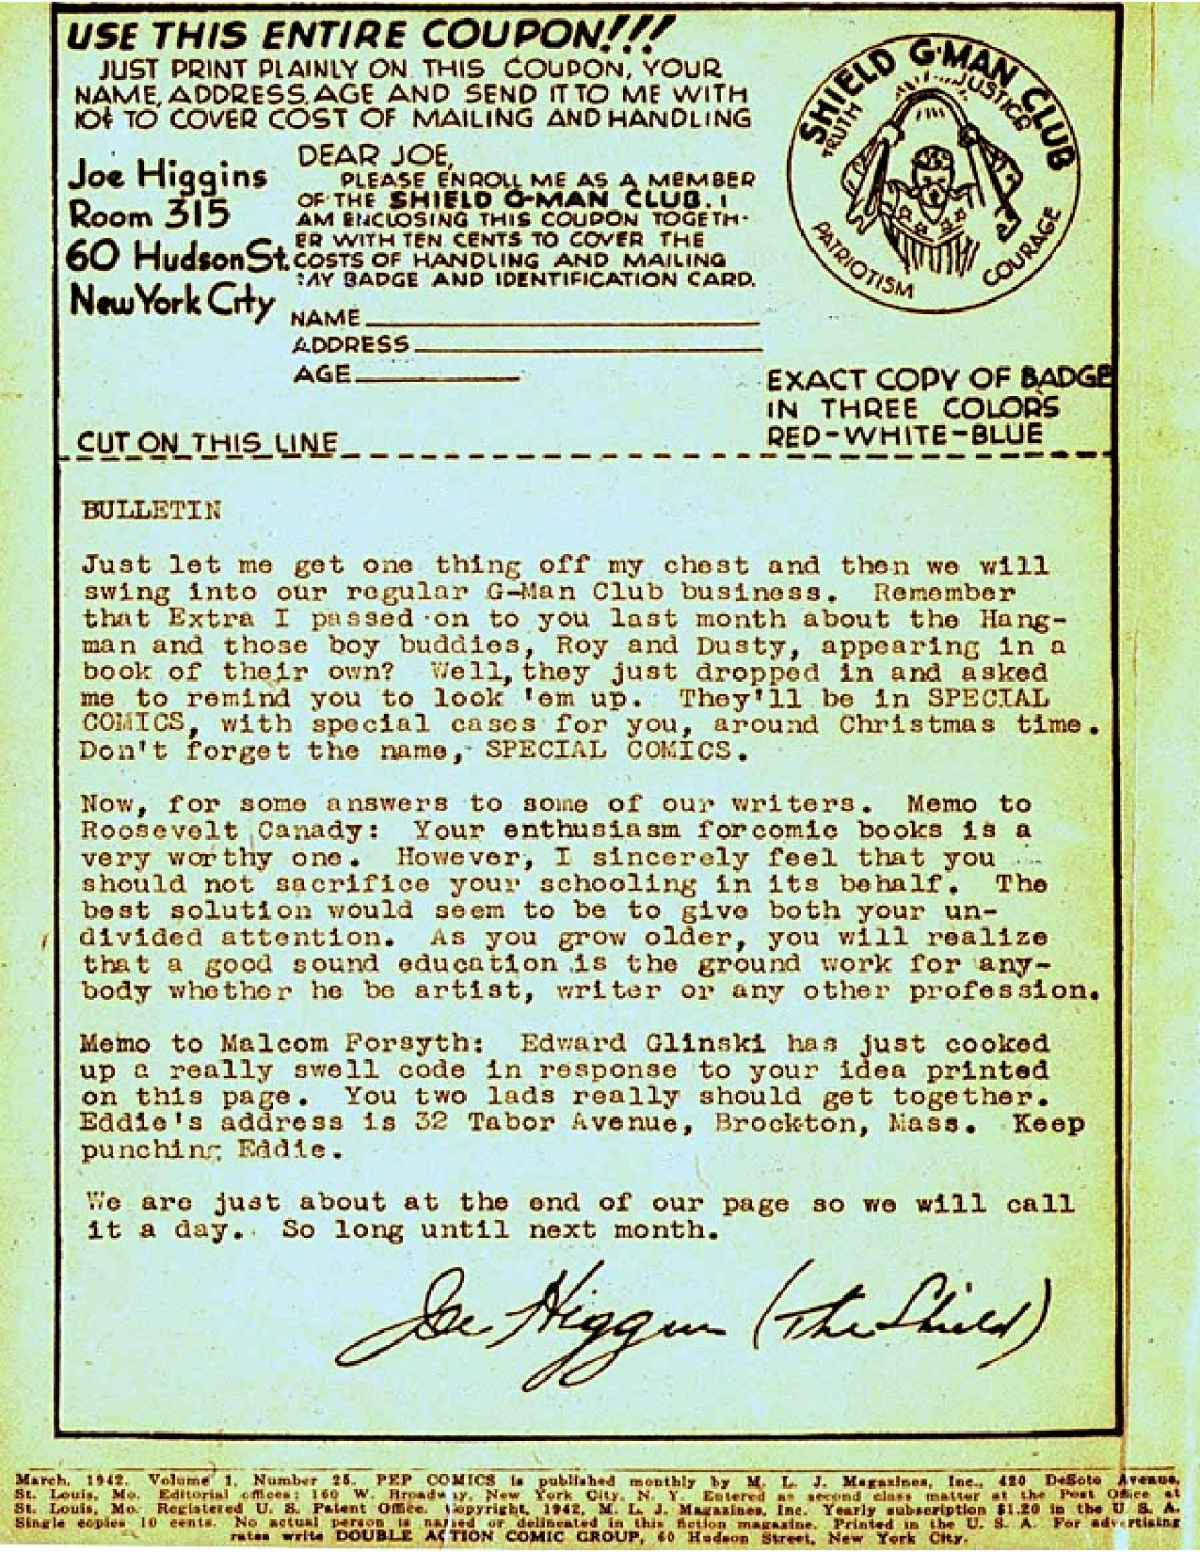 USE THIS ENTIRE COUPON!!!
JUST PRINT PLAINLY ON THIS COUPON, YOUR
NAME, ADDRESS, AGE AND SEND IT TO ME WITH
10¢ TO COVER COST OF MAILING AND HANDLING
Joe Higgins
Room 315
60 Hudson St.
New York City
DEAR JOE,
PLEASE ENROLL ME AS A MEMBER
OF THE SHIELD G-MAN CLUB. I
AM ENCLOSING THIS COUPON TOGETH-
ER WITH TEN CENTS TO COVER THE
COSTS OF HANDLING AND MAILING
MY BADGE AND IDENTIFICATION CARD.
NAME
ADDRESS
AGE
SHIELD G-MAN CLUB
TRUTH
JUSTICE
PATRIOTISM
COURAGE
EXACT COPY OF BADGE
IN THREE COLORS
RED-WHITE-BLUE
CUT ON THIS LINE
BULLETIN
Just let me get one thing off my chest and then we will
swing into our regular G-Man Club business. Remember
that Extra I passed on to you last month about the Hang-
man and those boy buddies, Roy and Dusty, appearing in a
book of their own? Well, they just dropped in and asked
me to remind you to look 'em up. They'll be in SPECIAL
COMICS, with special cases for you, around Christmas time.
Don't forget the name, SPECIAL COMICS.
Now, for some answers to some of our writers. Memo to
Roosevelt Canady: Your enthusiasm forcomic books is a
very worthy one. However, I sincerely feel that you
should not sacrifice your schooling in its behalf. The
best solution would seem to be to give both your un-
divided attention. As you grow older, you will realize
that a good sound education is the ground work for any-
body whether he be artist, writer or any other profession.
Memo to Malcom Forsyth: Edward Glinski has just cooked
up a really swell code in response to your idea printed
on this page. You two lads really should get together.
Eddie's address is 32 Tabor Avenue, Brockton, Mass. Keep
punching Eddie.
We are just about at the end of our page so we will call
it a day. So long until next month.
Joe Higgins (The Shield)
March, 1942. Volume 1, Number 25. PEP COMICS is published monthly by M. L. J. Magazines, Inc., 420 DeSoto Avenue,
St. Louis, Mo. Editorial offices: 160 W. Broadway, New York City, N. Y. Entered as second class matter at the Post Office at
St. Louis, Mo. Registered U. S. Patent Office. Copyright, 1942, M. L. J. Magazines, Inc. Yearly subscription $1.20 in the U. S. A.
Single copies 10 cents. No actual person is named or delineated in this fiction magazine. Printed in the U. S. A. For advertising
rates write DOUBLE ACTION COMIC GROUP, 60 Hudson Street, New York City.